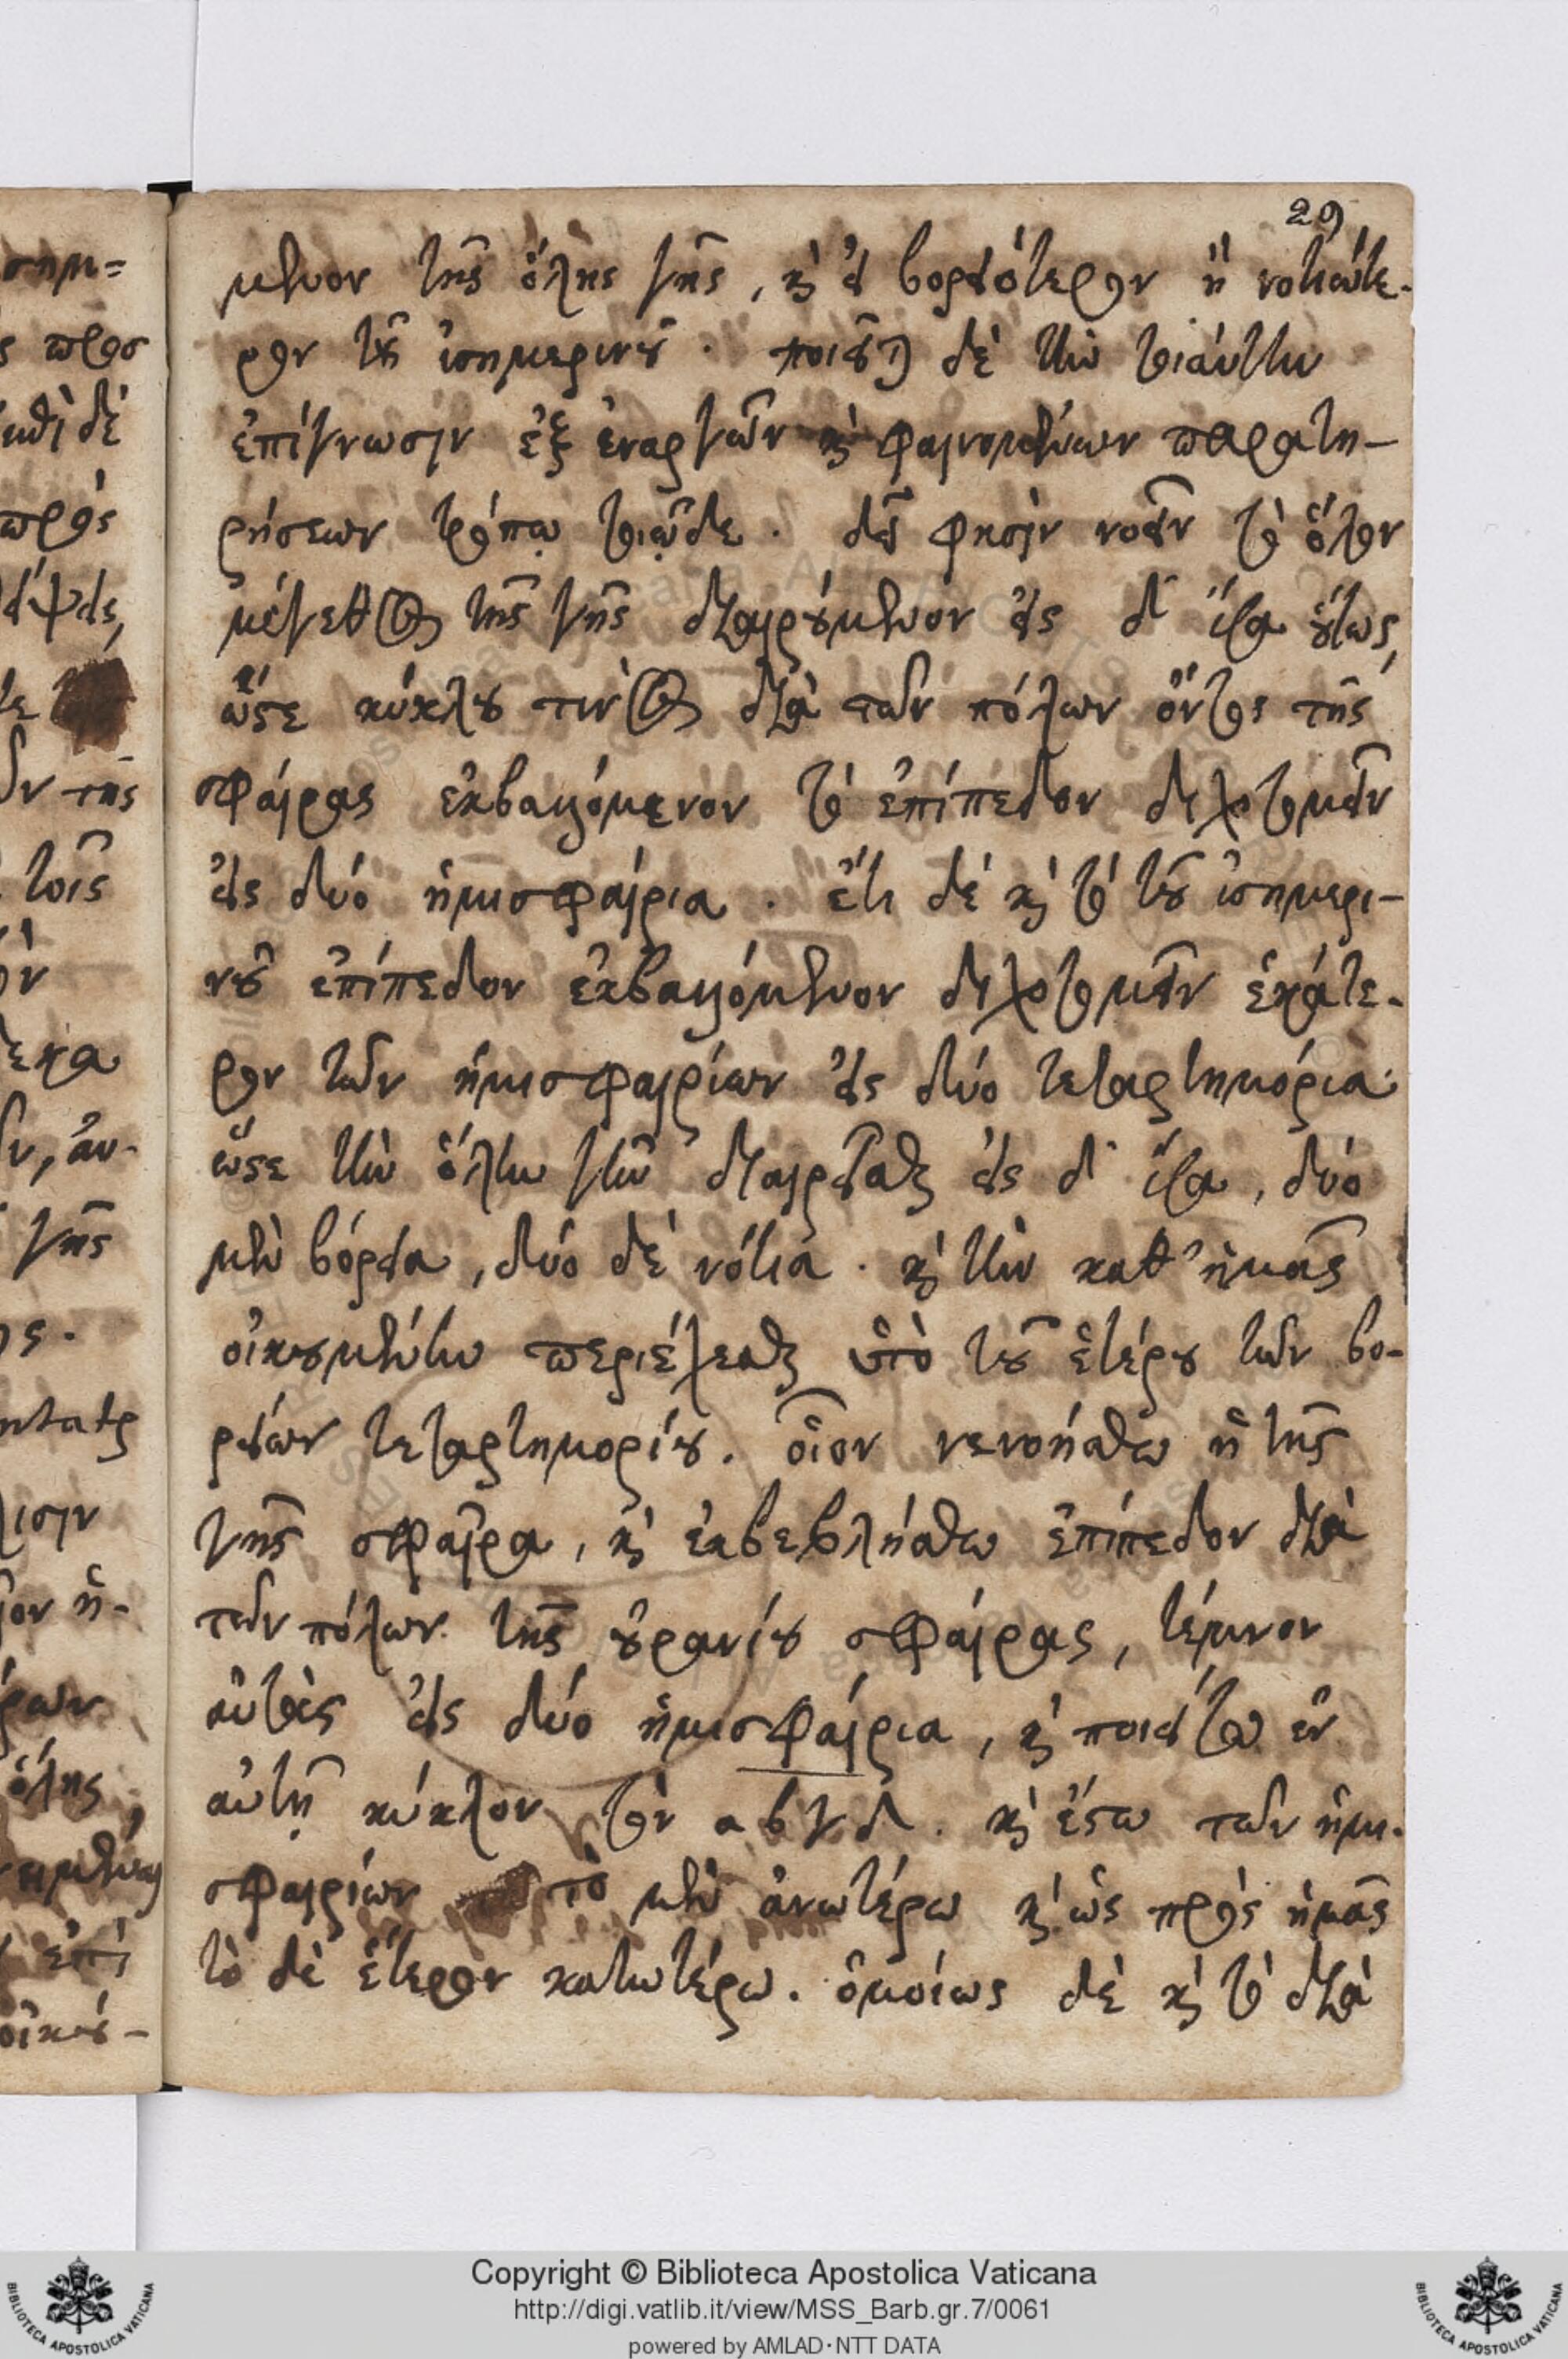 29
μενον τῆς ὅλης γῆς, καὶ εἰ βορειότερον ἢ νοτιώτε-
ρον τοῦ ἰσημερινοῦ. ποιεῖται δὲ τὴν τοιαύτην
ἐπίγνωσιν ἐξ ἐναργῶν καὶ φαινομένων παρατη-
ρήσεων τρόπῳ τοιῷδε. δεῖ φησὶν νοεῖν τὸ ὅλον
μέγεθος τῆς γῆς διαιρούμενον εἰς δ' ἴσα οὕτως,
ὥστε κύκλου τινὸς διὰ τῶν πόλων ὄντος τῆς
σφαίρας ἐκβαλλόμενον τὸ ἐπίπεδον διχοτομεῖν
εἰς δύο ἡμισφαίρια. ἔτι δὲ καὶ τὸ τοῦ ἰσημερι-
νοῦ ἐπίπεδον ἐκβαλλόμενον διχοτομεῖν ἑκάτε-
ρον τῶν ἡμισφαιρίων εἰς δύο τεταρτημόρια·
ὥστε τὴν ὅλην γῆν διαιρεῖσθαι εἰς δ' ἴσα, δύο
μὲν βόρεια, δύο δὲ νότια. καὶ τὴν καθ' ἡμᾶς
οἰκουμένην περιέχεσθαι ὑπὸ τοῦ ἑτέρου τῶν βο-
ρείων τεταρτημορίου. οἷον νενοήσθω ἡ τῆς
γῆς σφαῖρα, καὶ ἐκβεβλήσθω ἐπίπεδον διὰ
τῶν πόλων τῆς οὐρανίου σφαίρας, τέμνον
αὐτὰς εἰς δύο ἡμισφαίρια, καὶ ποιείτω ἐν
αὐτῇ κύκλον τὸν αβγδ. καὶ ἔστω τῶν ἡμι-
σφαιρίων τὸ μὲν ἀνωτέρω καὶ ὡς πρὸς ἡμᾶς
τὸ δὲ ἕτερον κατωτέρω. ὁμοίως δὲ καὶ τὸ διὰ
Copyright © Biblioteca Apostolica Vaticana
http://digi.vatlib.it/view/MSS_Barb.gr.7/0061
powered by AMLAD·NTT DATA
BIBLIOTECA APOSTOLICA VATICANA
BIBLIOTECA APOSTOLICA VATICANA